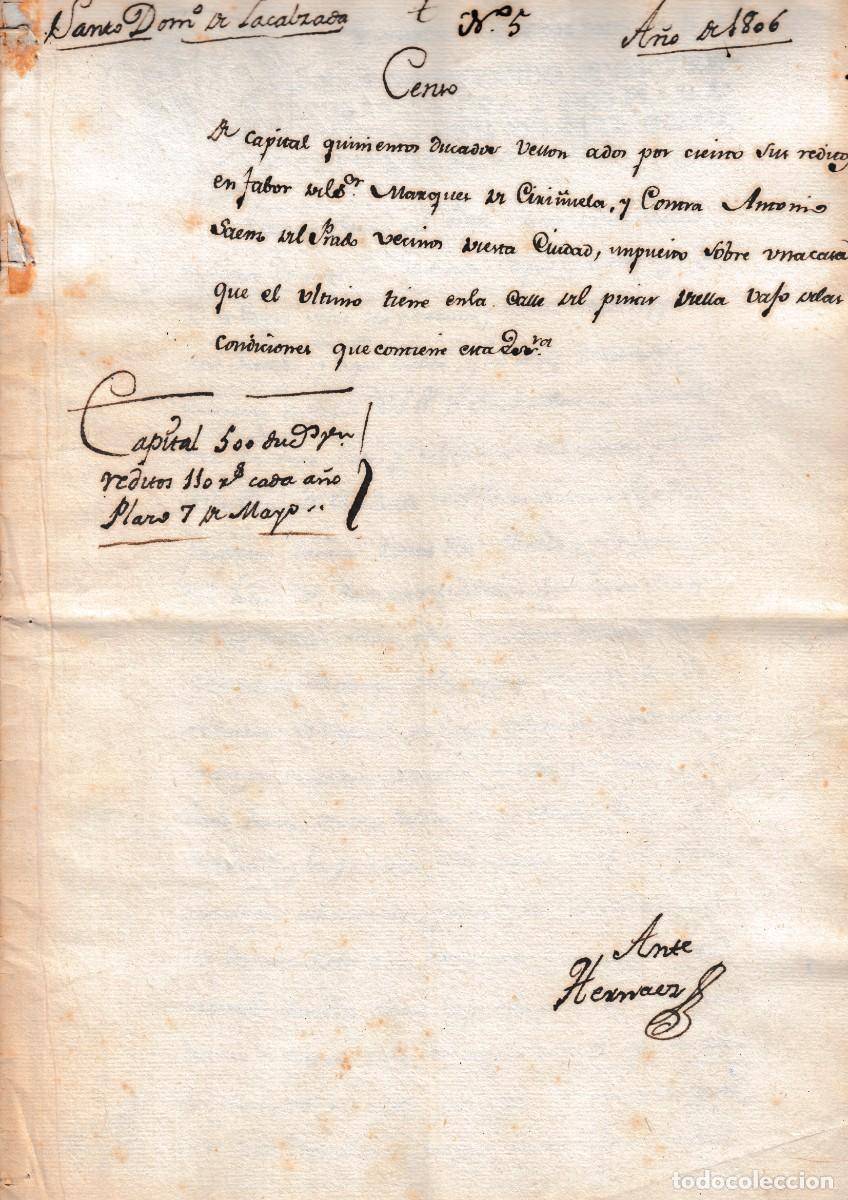 Santo Dom.º de Lacalzada † N.º 5 Año de 1806
Censo
de capital quinientos ducados vellon ados por ciento sus reditos
en fabor del S.or Marques de Ciriñuela, y Contra Antonio
Saenz del Prado vecinos desta Ciudad, impuesto sobre una casa
que el ultimo tiene enla Calle del pinar della vajo delas
condiciones que contiene esta
Capital 500 duc.s
reditos 110 r.s cada año
Plazo 7 de Mayo..
Ante
Hernaez
todocoleccion